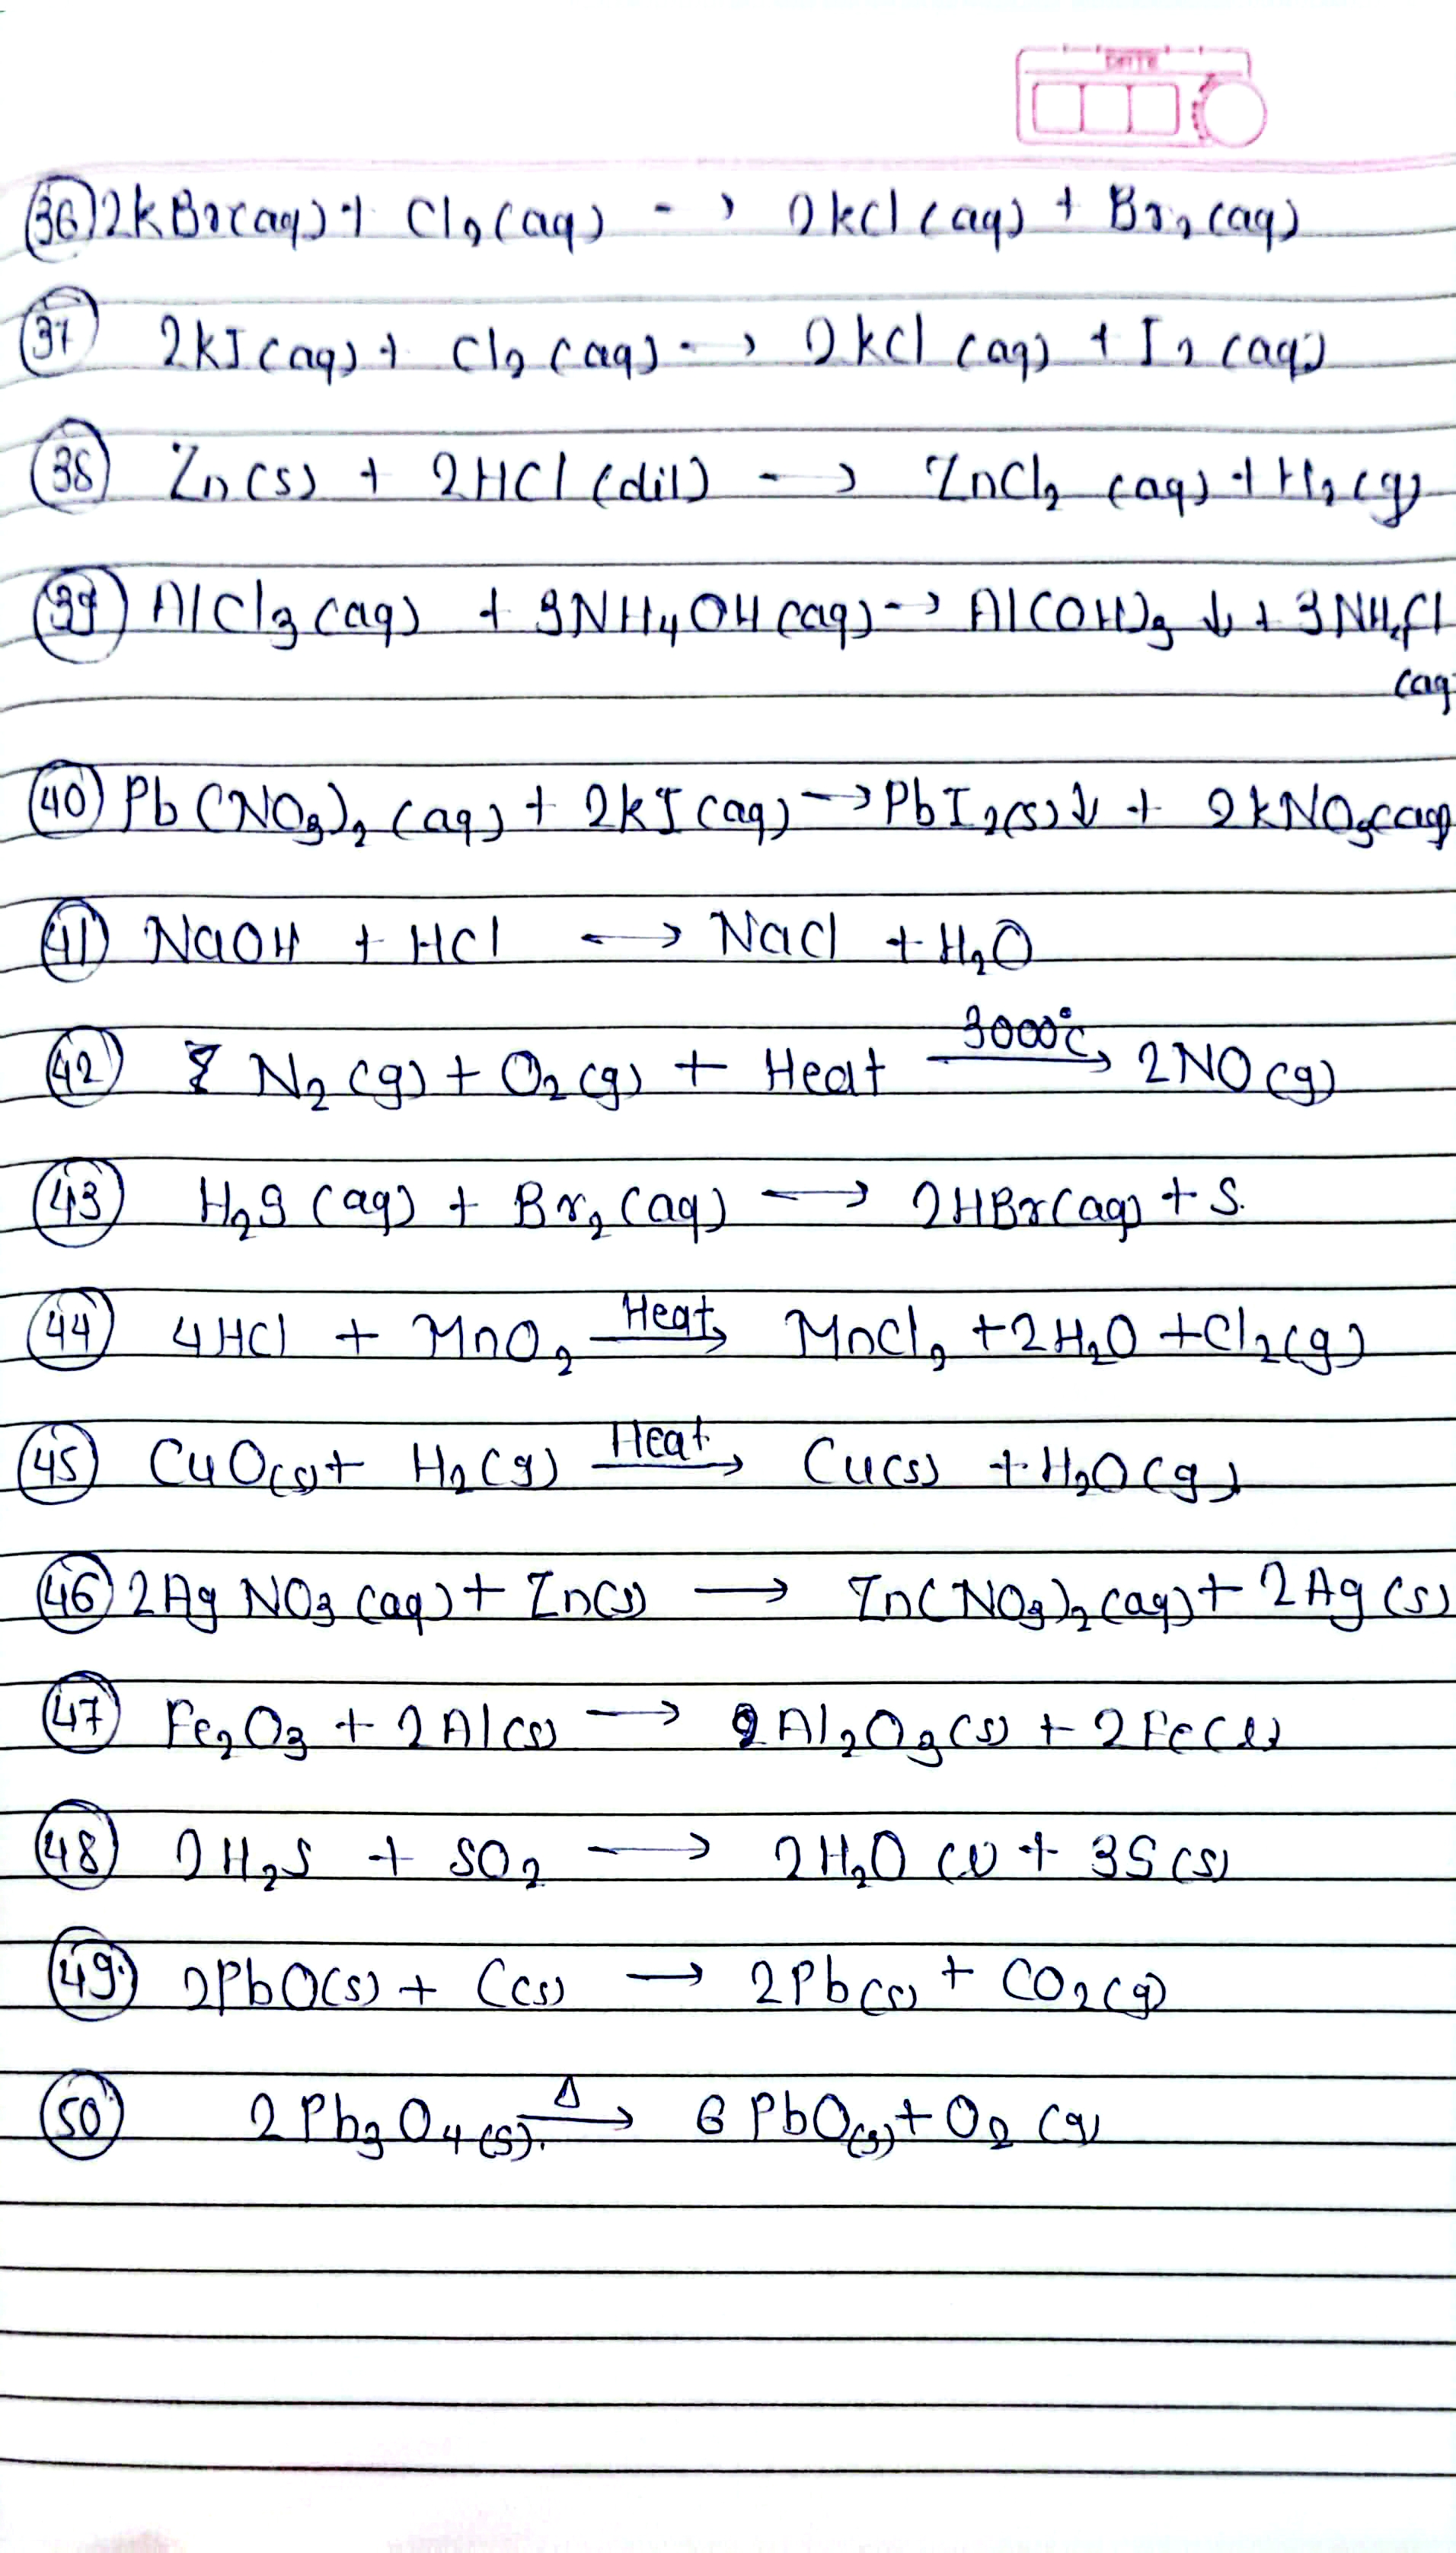 DATE
36 2kBr(aq) + Cl2(aq) -> 2kCl(aq) + Br2(aq)
37 2kI(aq) + Cl2(aq) -> 2kCl(aq) + I2(aq)
38 Zn(s) + 2HCl(dil) -> ZnCl2(aq) + H2(g)
39 AlCl3(aq) + 3NH4OH(aq) -> Al(OH)3 ↓ + 3NH4Cl
(aq
40 Pb(NO3)2(aq) + 2kI(aq) -> PbI2(s)↓ + 2kNO3(aq)
41 NaOH + HCl -> NaCl + H2O
3000°C
42 N2(g) + O2(g) + Heat -> 2NO(g)
43 H2S(aq) + Br2(aq) -> 2HBr(aq) + S.
Heat
44 4HCl + MnO2 -> MnCl2 + 2H2O + Cl2(g)
Heat
45 CuO(s) + H2(g) -> Cu(s) + H2O(g)
46 2AgNO3(aq) + Zn(s) -> Zn(NO3)2(aq) + 2Ag(s)
47 Fe2O3 + 2Al(s) -> Al2O3(s) + 2Fe(l)
48 2H2S + SO2 -> 2H2O(l) + 3S(s)
49 2PbO(s) + C(s) -> 2Pb(s) + CO2(g)
Δ
50 2Pb3O4(s). -> 6PbO(s) + O2(g)